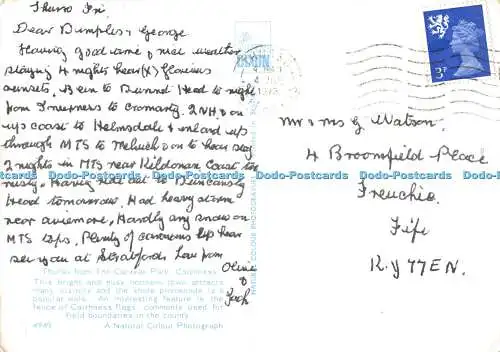 Thurso Fri
Dear Bimples & George
Having good time & nice weather
staying 4 nights hear (X) Glorious
sunsets, Been to Dunnd Head to night
from Inverness to Cromarty. 2NH & on
up coast to Helmsdale & inland up
through MTS to Melvich & on to hear stay
2 nights in MTS near Kildonan Coast too
misty. Having ride out to Duncansby
Head tomorrow. Had heavy storm
near aviemore. Hardly any snow on
MTS tops. Plenty of caravans up hear
see you at Stratford Love from
Olive
&
Jack
Mr & Mrs G Watson.
4 Broomfield Place
Freuchie
Fife
KY7 7EN.
3P
Thurso from The Caravan Park, Caithness
This bright and busy northern town attracts
many visitors and the shore promenade is a
popular walk. An interesting feature is the
fence of Caithness flags commonly used for
field boundaries in the county
A Natural Colour Photograph
DIXON
Dodo-Postcards